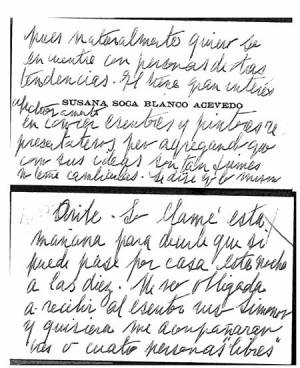 pues naturalmente quiero se
encuentre con personas de tres
tendencias. El tiene gran interés
SUSANA SOCA BLANCO ACEVEDO
en conocer escritores y pintores re
presentativos pero agregando que
con sus ideas son tan
Le dire a lo mismo
Orite. Lo llamé esta
mañana para decirle que si
puede pase por casa esta noche
a las diez. Me veo obligada
a recibir al escritor ruso Simonov
y quisiera me acompañaran
tres o cuatro personas "libres"